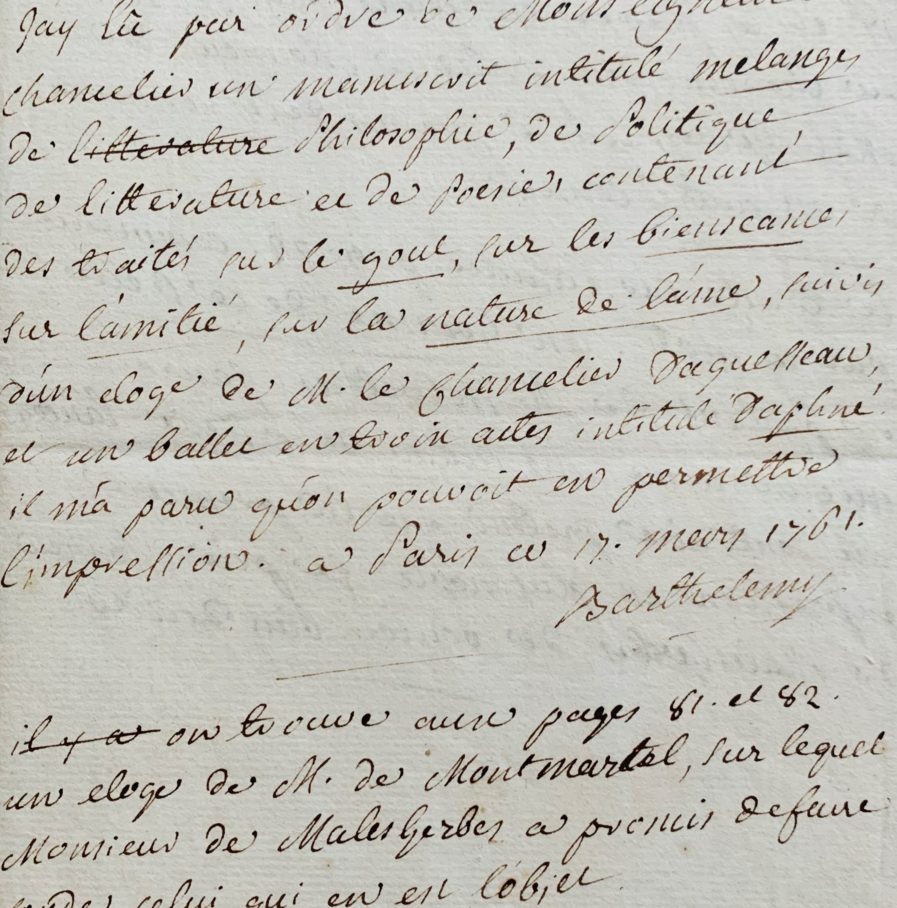 J'ay lû par ordre de Monseigneur
chancelier un manuscrit intitulé melanges
de litterature Philosophie, de Politique,
de litterature et de Poesie, contenant
des traités sur le gout, sur les bienseances
sur l'amitié, sur la nature de l'ame, suivis
d'un eloge de M. le Chancelier Daguesseau,
et un ballet en trois actes intitulé Daphné.
il m'a paru qu'on pouvoit en permettre
l'impression. a Paris ce 17. mars 1761.
Barthelemy
il y a on trouve aux pages 81. et 82.
un eloge de M. de Montmartel, sur lequel
Monsieur de Malesherbes a promis de faire
celui qui en est l'objet.